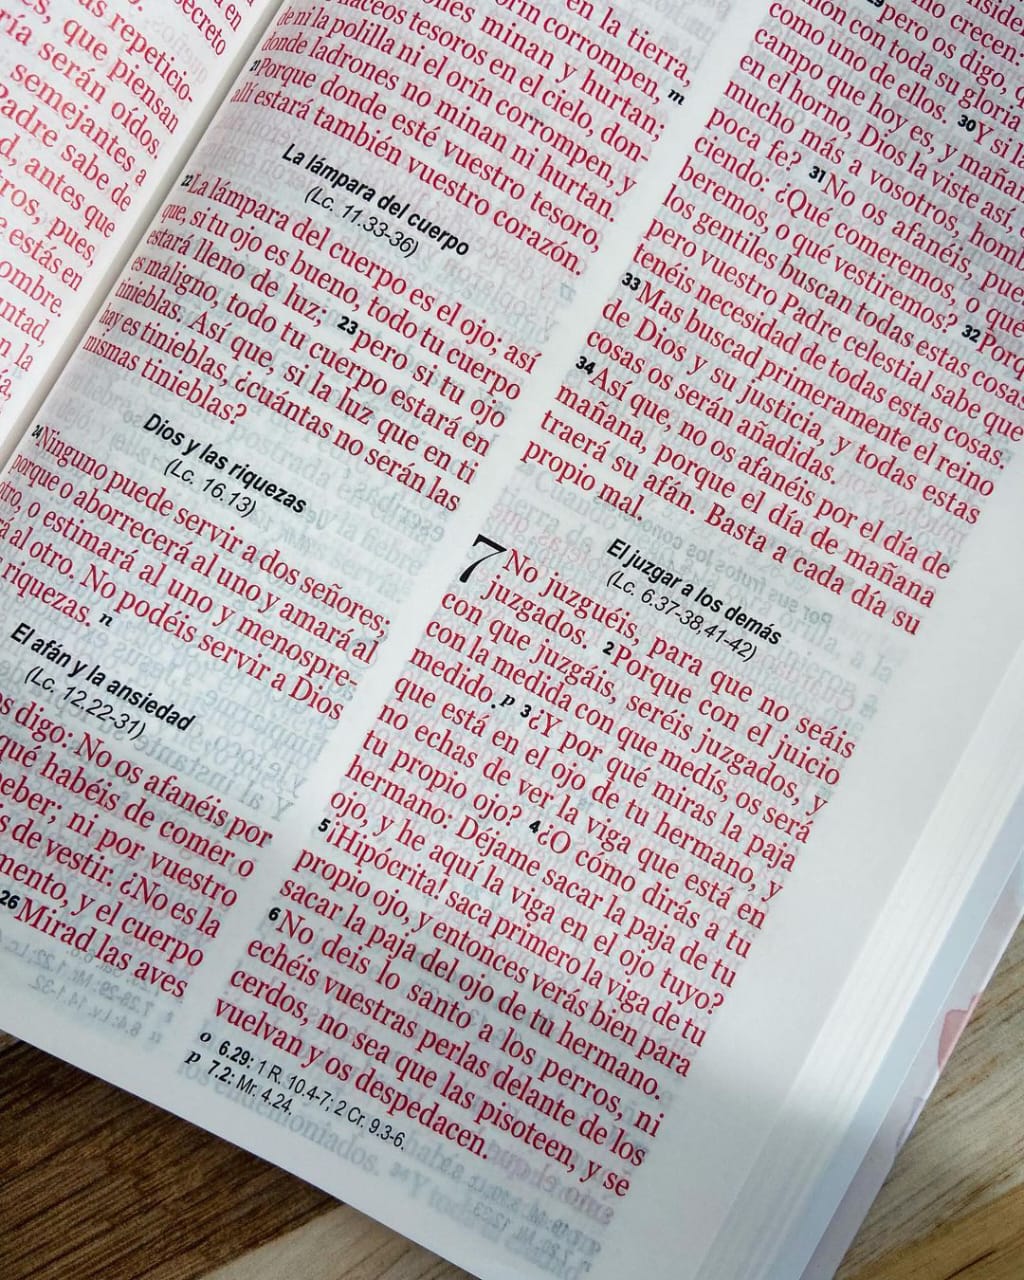 secreto
s repeticio-
s, que piensan
ría serán oídos
semejantes a
Padre sabe de
d, antes que
ros, pues,
e estás en
ombre.
untad,
n la
en la tierra,
orín corrompen,
ones minan y hurtan; m
haceos tesoros en el cielo, don-
de ni la polilla ni el orín corrompen, y
donde ladrones no minan ni hurtan.
21 Porque donde esté vuestro tesoro,
allí estará también vuestro corazón.
La lámpara del cuerpo
(Lc. 11.33-36)
22 La lámpara del cuerpo es el ojo; así
que, si tu ojo es bueno, todo tu cuerpo
estará lleno de luz; 23 pero si tu ojo
es maligno, todo tu cuerpo estará en
tinieblas. Así que, si la luz que en ti
hay es tinieblas, ¿cuántas no serán las
mismas tinieblas?
Dios y las riquezas
(Lc. 16.13)
24 Ninguno puede servir a dos señores;
porque o aborrecerá al uno y amará al
otro, o estimará al uno y menospre-
á al otro. No podéis servir a Dios
riquezas. n
El afán y la ansiedad
(Lc. 12.22-31)
os digo: No os afanéis por
qué habéis de comer o
beber; ni por vuestro
s de vestir. ¿No es la
mento, y el cuerpo
26 Mirad las aves
no crecen:
29 pero os digo, q
món con toda su gloria
como uno de ellos. 30 Y si l
campo que hoy es, y mañan
en el horno, Dios la viste así, ¿
mucho más a vosotros, homb
poca fe? 31 No os afanéis, pue
ciendo: ¿Qué comeremos, o qué
beremos, o qué vestiremos? 32 Porq
los gentiles buscan todas estas cosas
pero vuestro Padre celestial sabe que
tenéis necesidad de todas estas cosas.
33 Mas buscad primeramente el reino
de Dios y su justicia, y todas estas
cosas os serán añadidas.
34 Así que, no os afanéis por el día de
mañana, porque el día de mañana
traerá su afán. Basta a cada día su
propio mal.
El juzgar a los demás
(Lc. 6.37-38,41-42)
7 No juzguéis, para que no seáis
juzgados. 2 Porque con el juicio
con que juzgáis, seréis juzgados, y
con la medida con que medís, os será
medido. p 3 ¿Y por qué miras la paja
que está en el ojo de tu hermano, y
no echas de ver la viga que está en
tu propio ojo? 4 ¿O cómo dirás a tu
hermano: Déjame sacar la paja de tu
ojo, y he aquí la viga en el ojo tuyo?
5 ¡Hipócrita! saca primero la viga de tu
propio ojo, y entonces verás bien para
sacar la paja del ojo de tu hermano.
6 No deis lo santo a los perros, ni
echéis vuestras perlas delante de los
cerdos, no sea que las pisoteen, y se
vuelvan y os despedacen.
o 6.29: 1 R. 10.4-7; 2 Cr. 9.3-6.
p 7.2: Mr. 4.24.